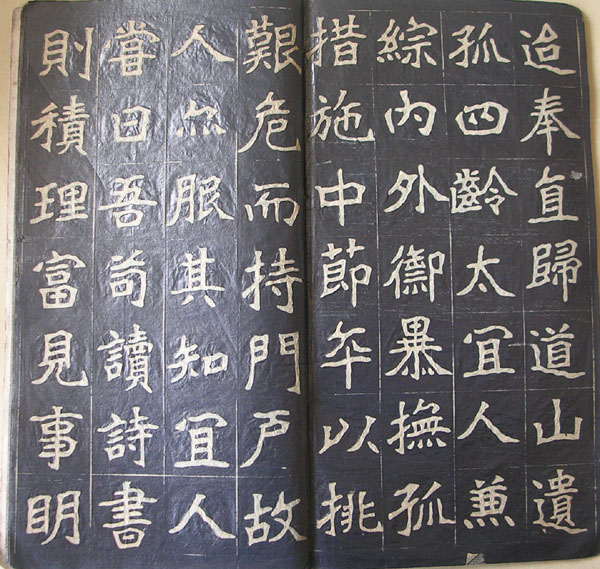 迨奉直歸道山遺
孤四齡太宜人兼
綜內外御暴撫孤
措施中節卒以挑
艱危而持門戶故
人尒服其知宜人
嘗曰吾苟讀詩書
則積理富見事明